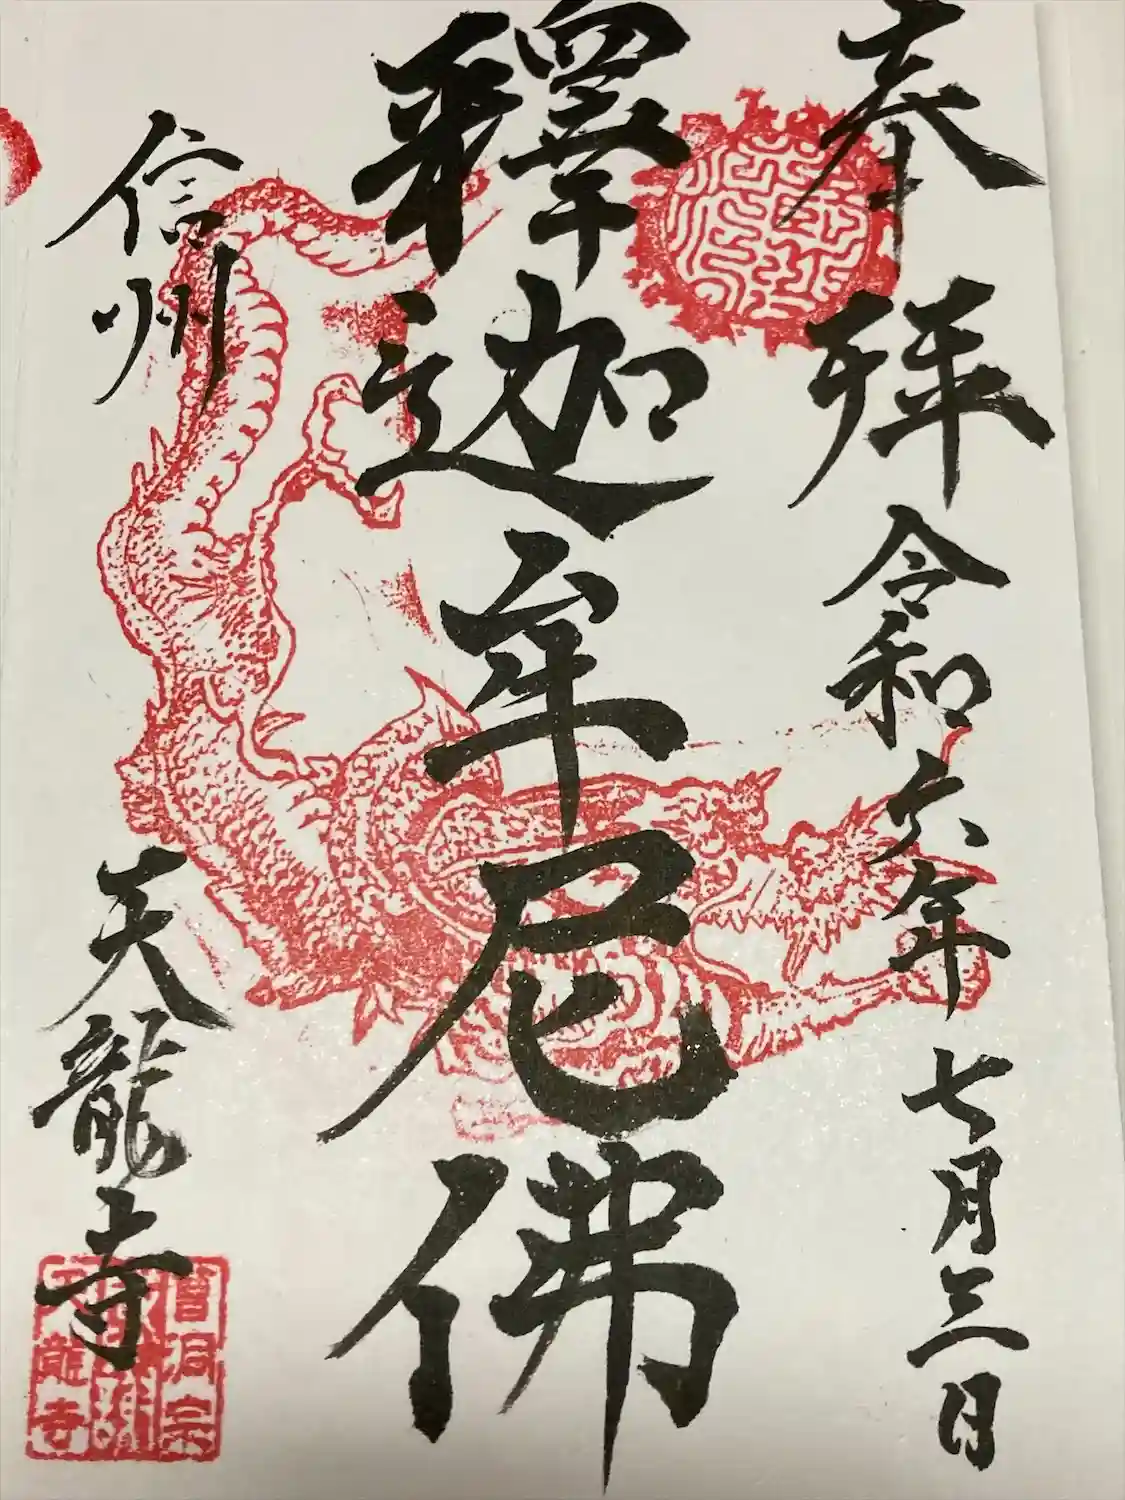 奉拜
令和六年七月三日
釋迦牟尼佛
信州
天龍寺
曹洞宗
天龍寺